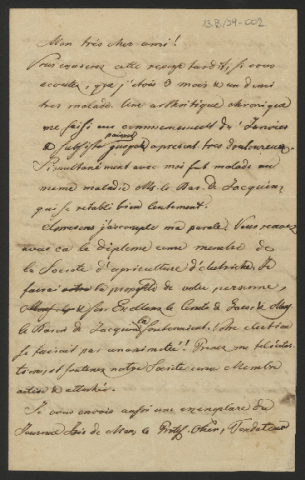 13.B/39-002
Mon très cher ami!
Vous excuserez cette reponse tardife, si vous
ecoutez, que j'étois 3 mois & un demi
tres malade. Une arthritique chronique
me saisi au commencement de Janvier
& subsiste jusqu'a present tres douloureux.
Simultanément avec moi fut malade au
meme maladie Mr. le Bar. de Jacquin,
qui se retabli bien lentement.
A present j'accomplis ma parole. Vous recevez
avec ça le diplome comme membre de
la Societé d'agriculture d'Autriche. Je
faisoi la proposition de votre personne,
Son Excellence le Comte de
le Baron de Jacquin la soutenoient. Votre election
se faisoit par unanimité!! Prenez ma felicita-
tion, et soutenez notre Societé comme Membre
active & attachée.
Je vous envois aussi une exemplaire du
Journal de le Profess.